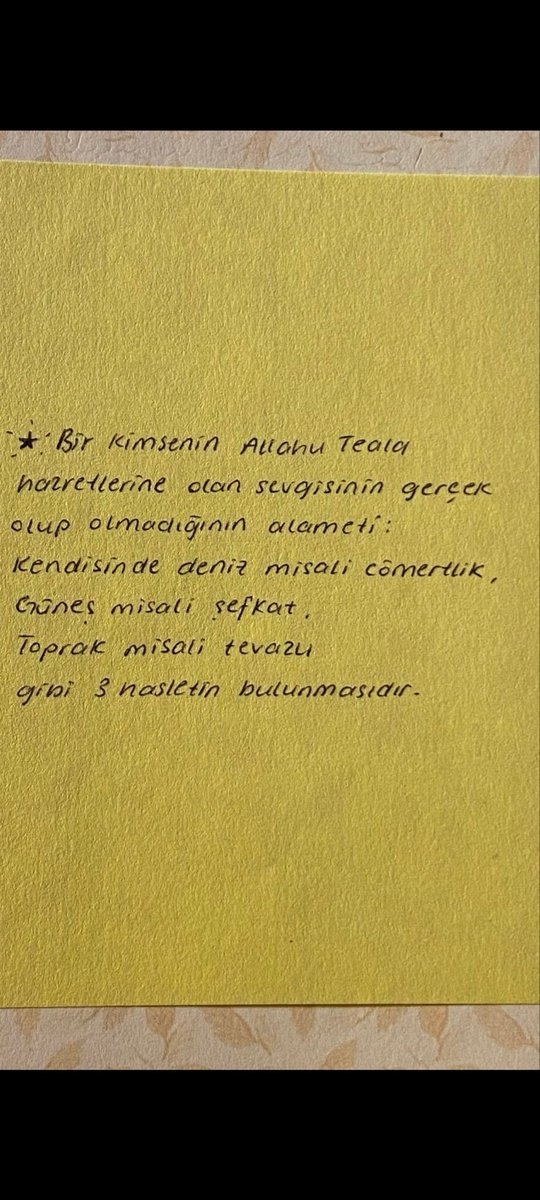 ★ Bir kimsenin Allahu Teala
hazretlerine olan sevgisinin gerçek
olup olmadığının alameti:
Kendisinde deniz misali cömertlik,
Güneş misali şefkat,
Toprak misali tevazu
gibi 3 hasletin bulunmasıdır.